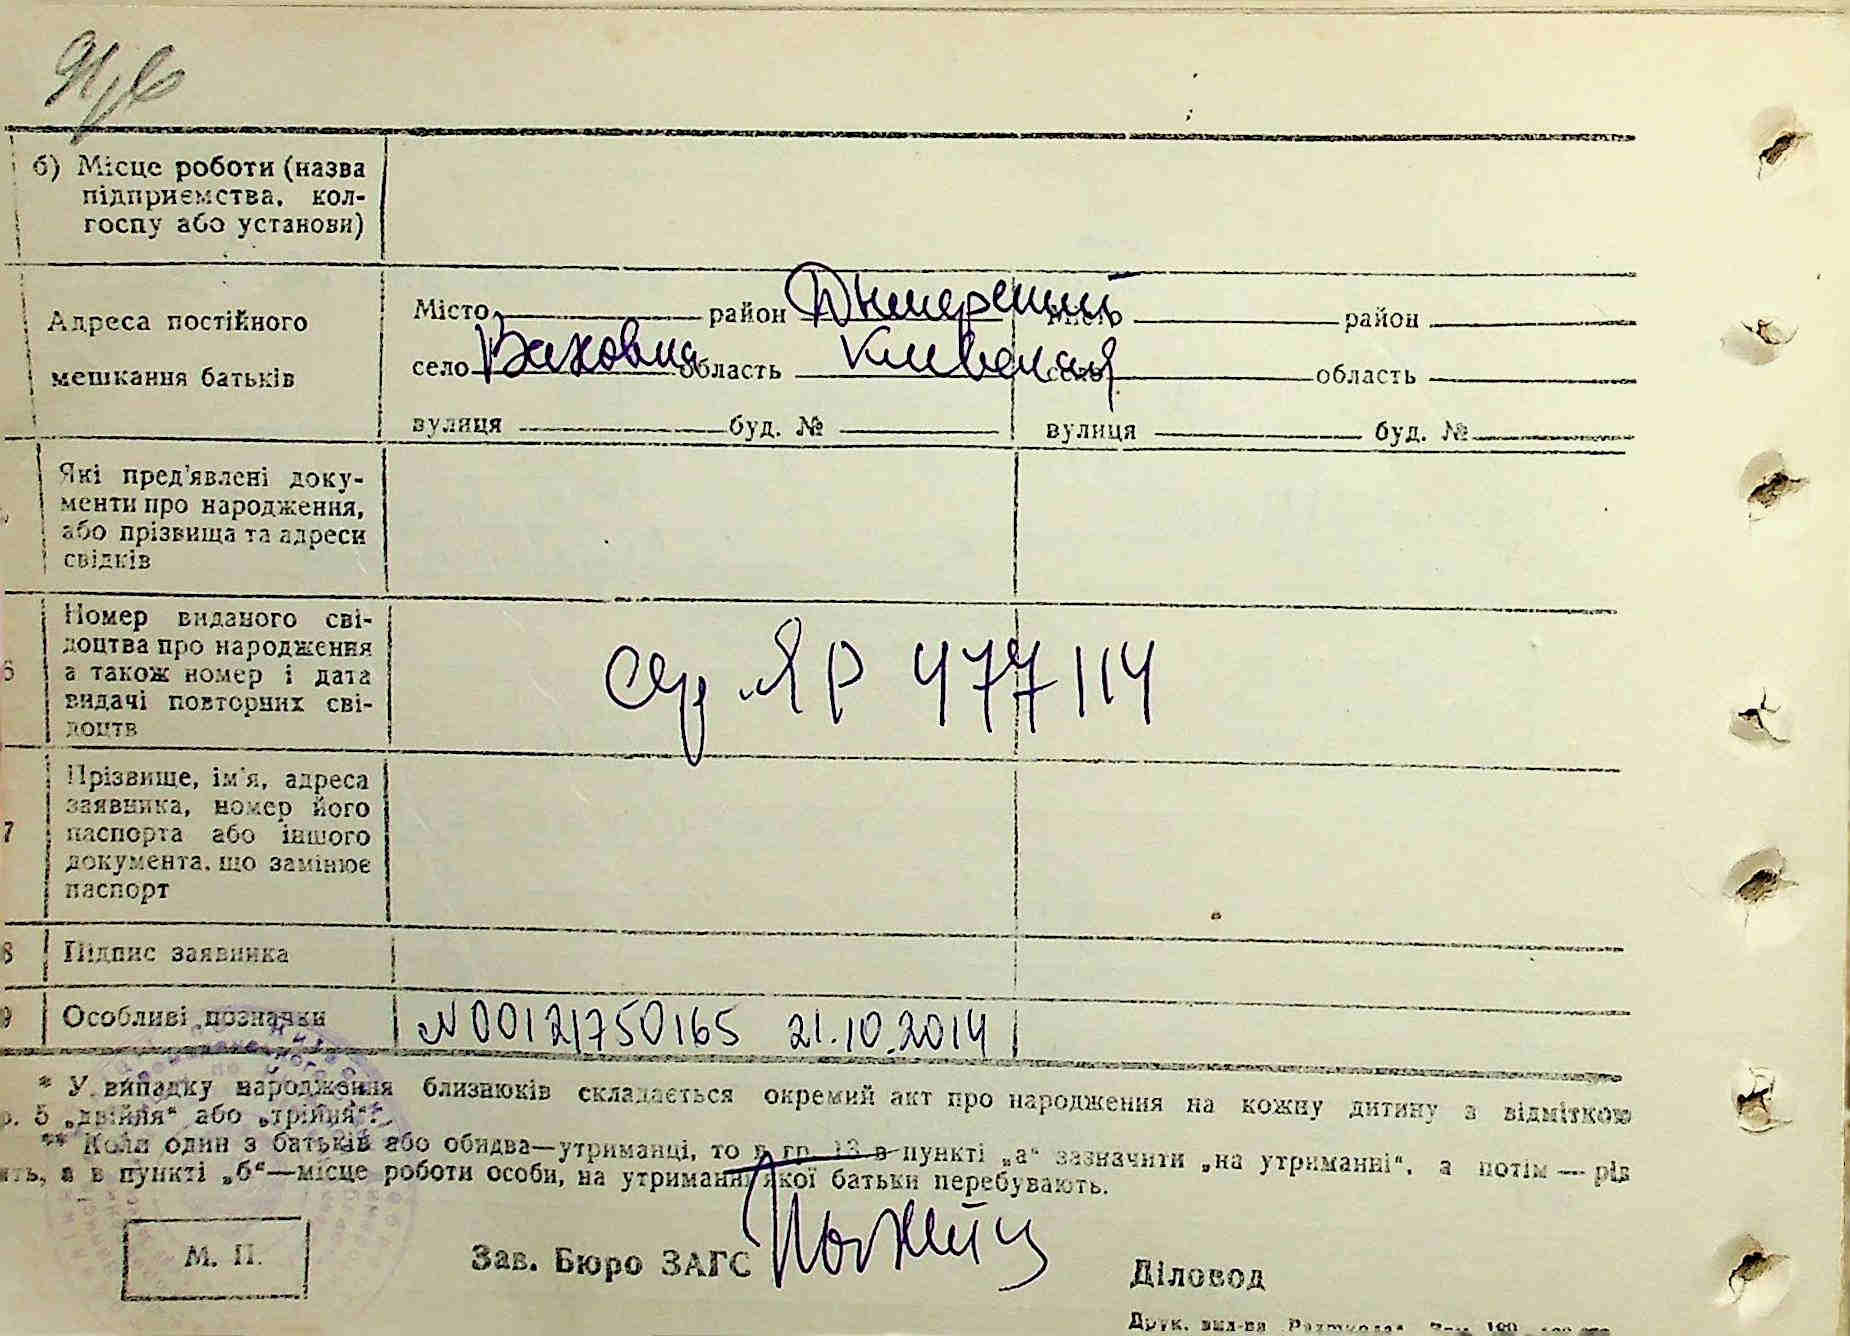 б) Місце роботи (назва
підприємства, кол-
госпу або установи)
Адреса постійного
мешкання батьків
Місто район Дымерский
село Ваховка область Киевская
вулиця буд. №
Місто район
село область
вулиця буд. №
Які пред'явлені доку-
менти про народження,
або прізвища та адреси
свідків
6 Номер виданого сві-
доцтва про народження
а також номер і дата
видачі повторних сві-
доцтв
ЯР 477114
7 Прізвище, ім'я, адреса
заявника, номер його
паспорта або іншого
документа, що замінює
паспорт
8 Підпис заявника
9 Особливі позначки
N00121750165 21.10.2014
* У випадку народження близнюків складається окремий акт про народження на кожну дитину з відміткою
5 „двійня“ або „трійня“.
** Коли один з батьків або обидва—утриманці, то в гр. 13 в пункті „а“ зазначити „на утриманні“, а потім — рід
а в пункті „б“—місце роботи особи, на утриманні якої батьки перебувають.
М. П.
Зав. Бюро ЗАГС
Діловод